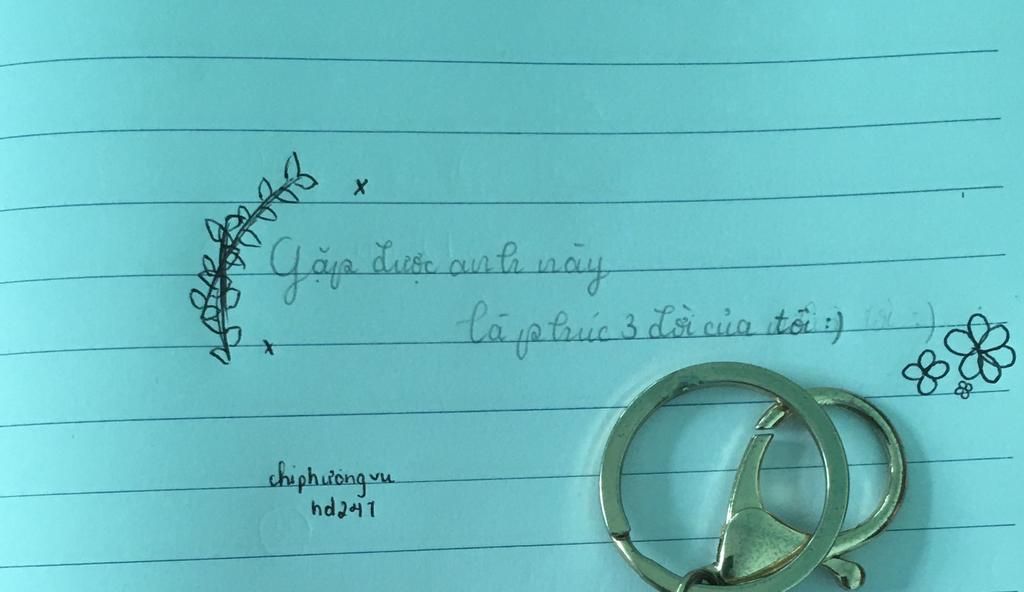 Gặp được anh này
là phúc 3 đời của tôi :)
chiphuongvu
hd247